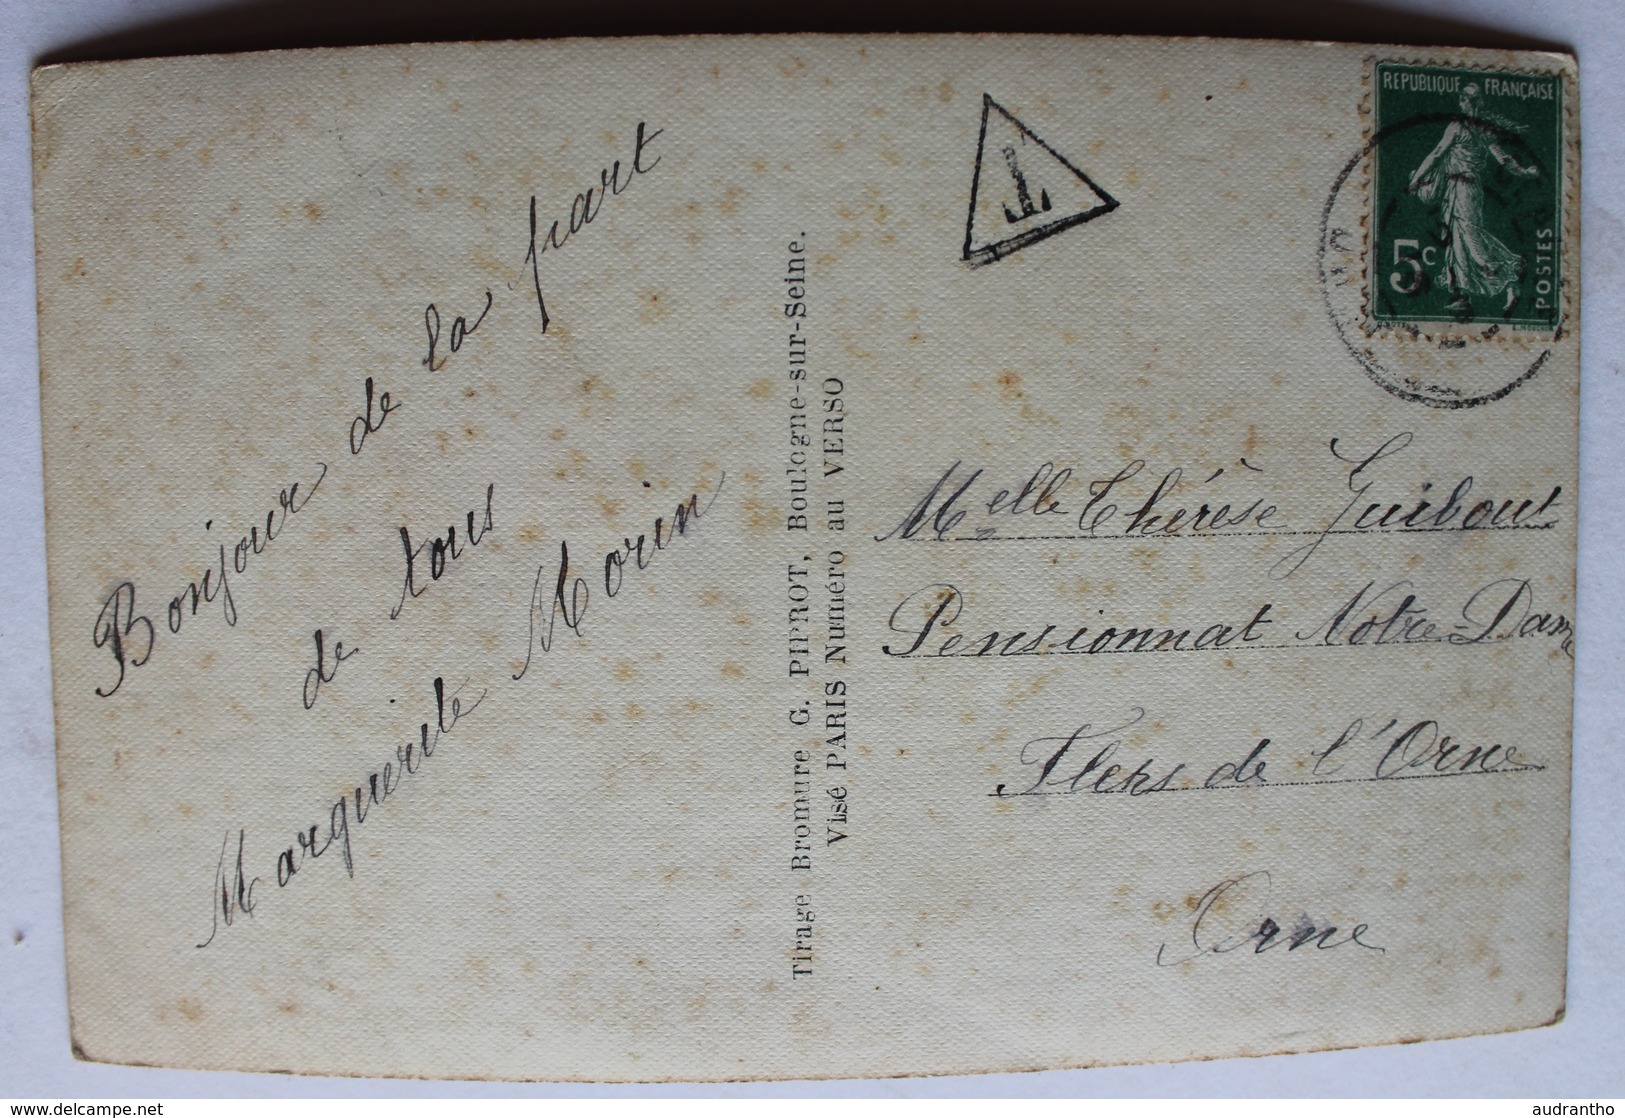 Bonjour de la part
de tous
de
Marguerite Morin
Tirage Bromure G. PIPROT, Boulogne-sur-Seine.
Visé PARIS Numéro au VERSO
T
REPUBLIQUE FRANÇAISE
5c
POSTES
Melle Thérèse Guibout
Pensionnat Notre-Dame
Flers de l'Orne
Orne
delcampe.net
audrantho